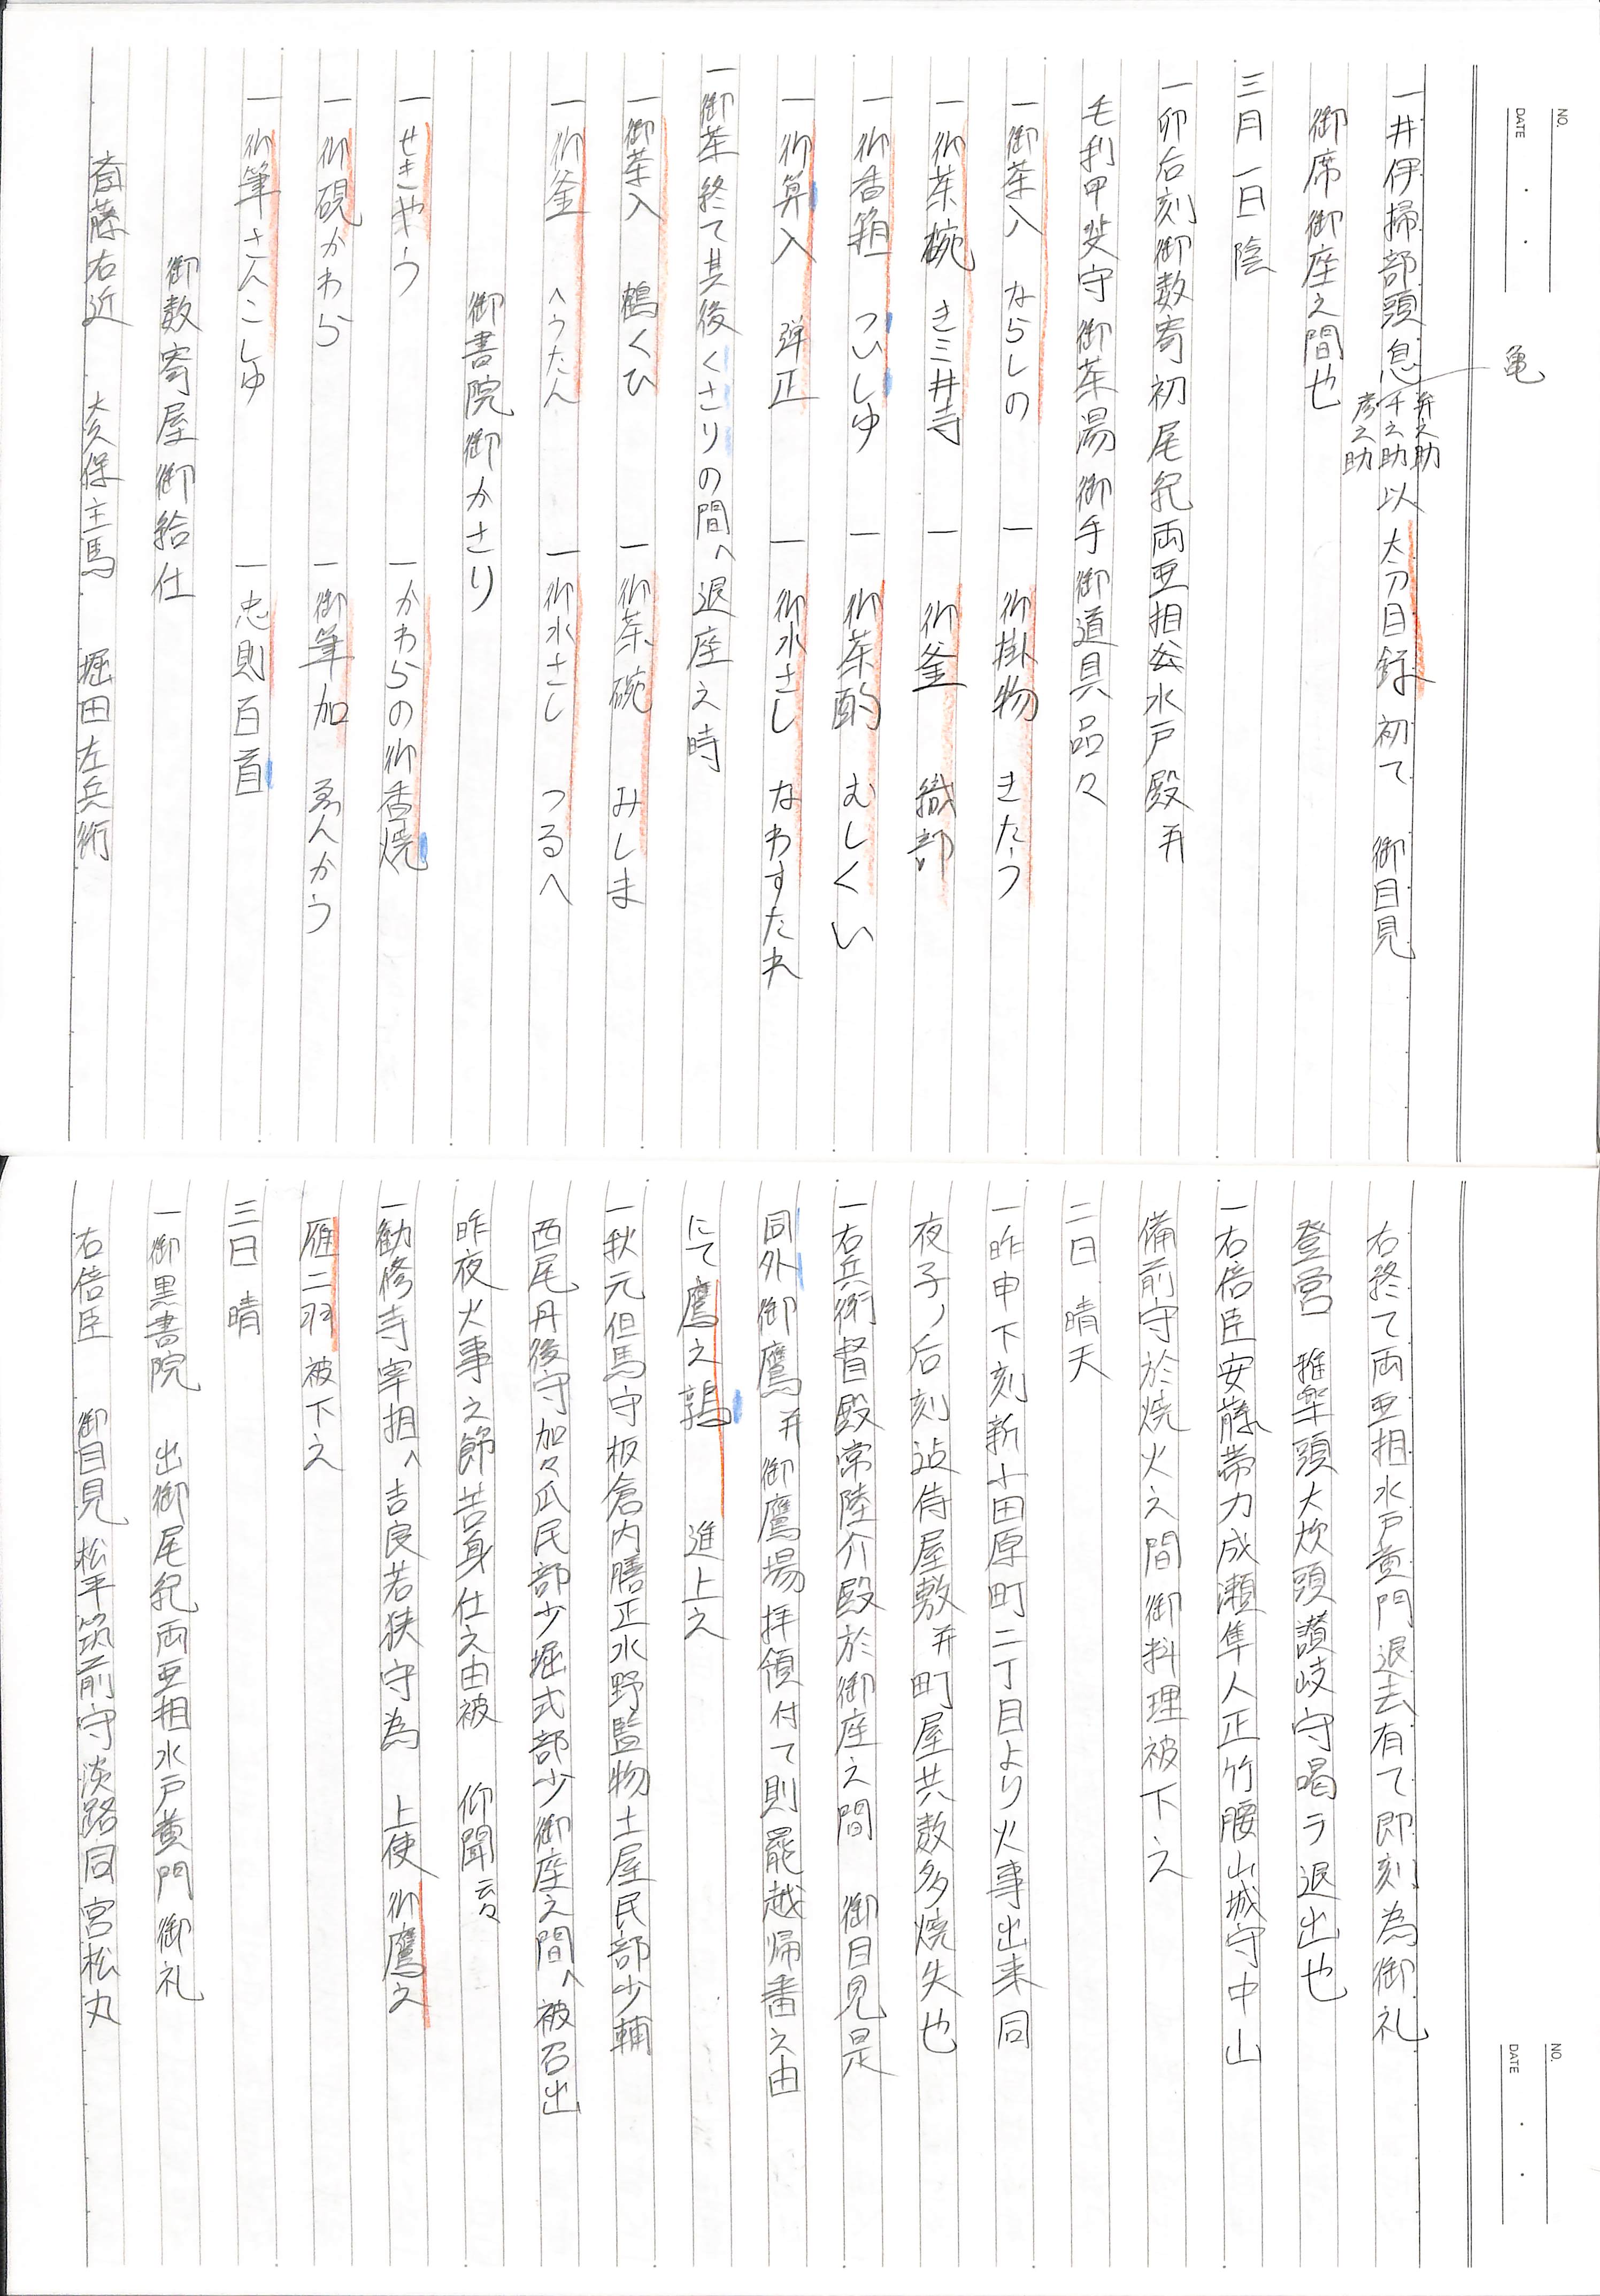 NO.
DATE
亀
一井伊掃部頭息 弁之助 千之助 彦之助 以太刀目録初て 御目見
御席御座之間也
三月一日陰
一卯后刻御数寄初尾紀両亜相公水戸殿并
毛利甲斐守御茶湯御手御道具品々
一御茶入 ならしの 一御掛物 きたう
一御茶碗 き三井寺 一御釜 織部
一御香箱 つひしゆ 一御茶酌 むしくい
一御算入 弾正 一御水さし なわすたれ
一御茶終て其後くさりの間へ退座之時
一御茶入 鶴くひ 一御茶碗 みしま
一御釜 へうたん 一御水さし つるへ
御書院御かさり
一せきやう 一かわらの御香焼
一御硯かわら 一御筆加 ゑんかう
一御筆さんこしゆ 一忠則百首
御数寄屋御給仕
斎藤右近 大久保主馬 堀田左兵衛
NO.
DATE
右終て両亜相水戸黄門退去有て即刻為御礼
登営 雅楽頭大炊頭讃岐守喝ラ退出也
一右倍臣安藤帯刀成瀬隼人正竹腰山城守中山
備前守於焼火之間御料理被下之
二日晴天
一昨申下刻新小田原町二丁目より火事出来同
夜子ノ后刻迠侍屋敷并町屋共数多焼失也
一右兵衛督殿常陸介殿於御座之間 御目見是
同外御鷹并御鷹場拝領付て則罷越帰番之由
にて鷹之鶉 進上之
一秋元但馬守板倉内膳正水野監物土屋民部少輔
西尾丹後守加々爪民部少堀式部少御座之間へ被召出
昨夜火事之節苦身仕之由被 仰聞云々
一勧修寺宰相へ吉良若狭守為 上使御鷹之
雁二羽被下之
三日晴
一御黒書院 出御尾紀両亜相水戸黄門御礼
右倍臣 御目見松平筑前守淡路同宮松丸